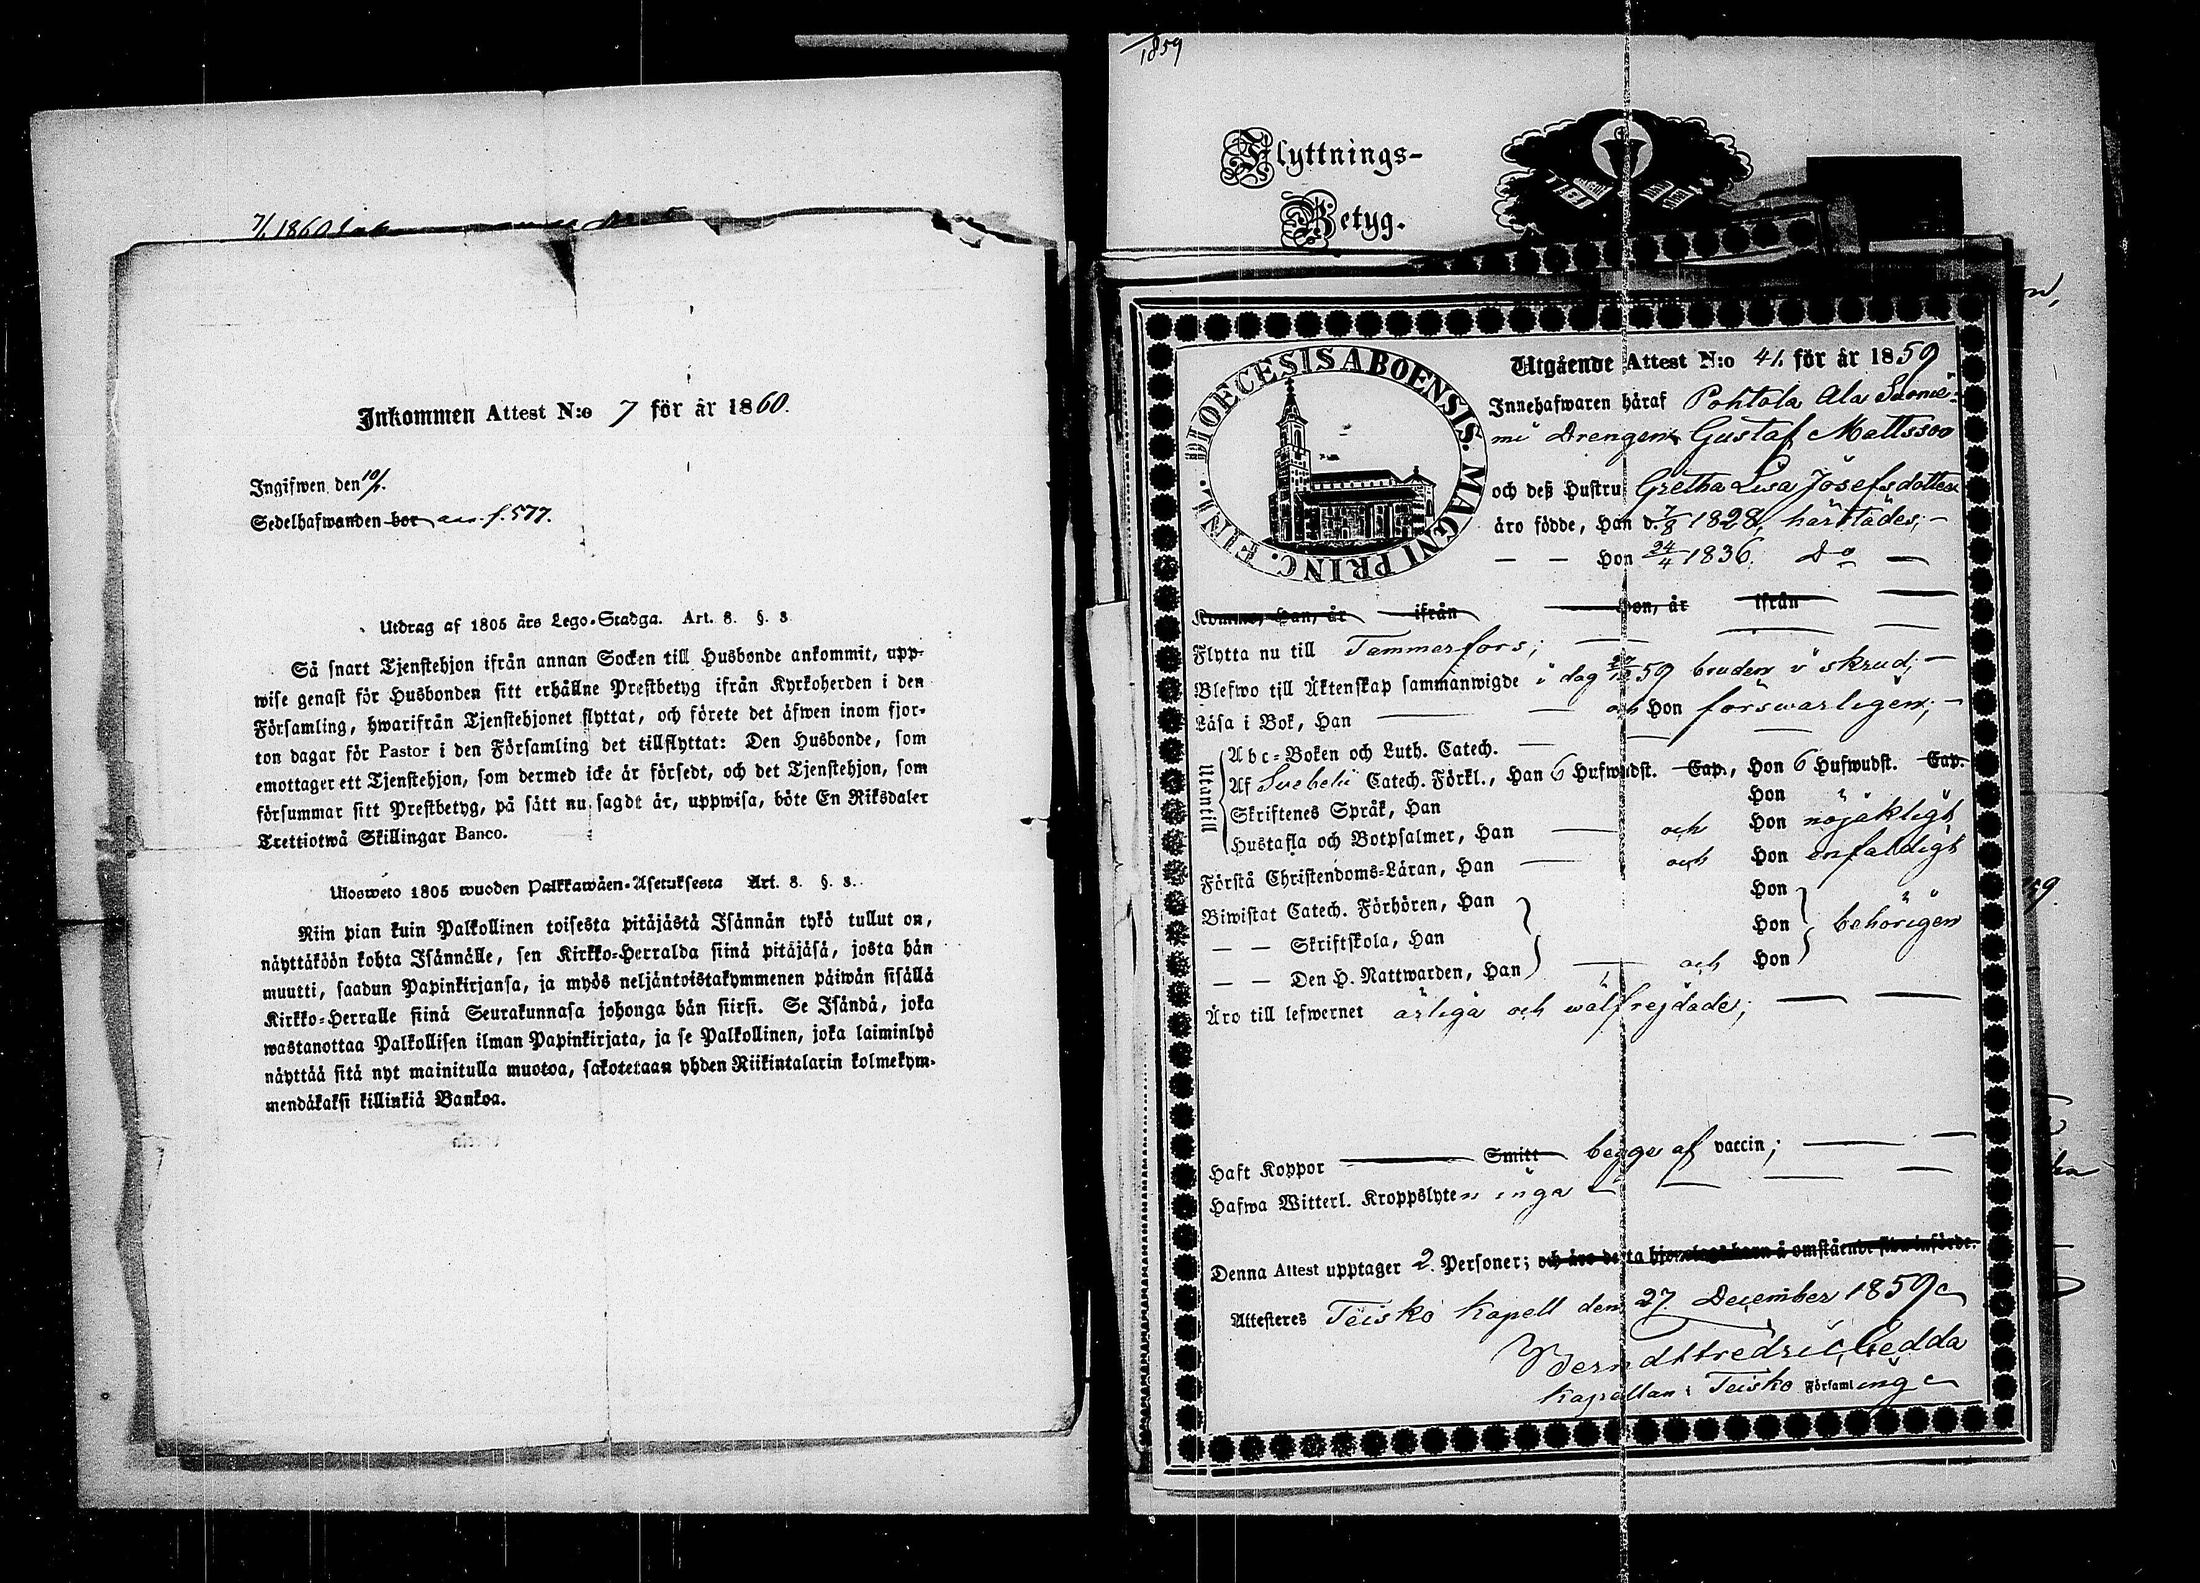 7/1 1860
Inkommen Attest N:o 7 för år 1860.
Ingifwen den 10/1.
Sedelhafwanden bor ann. f. 577.
Utdrag af 1805 års Lego-Stadga. Art. 8. §. 3
Så snart Tjenstehjon ifrån annan Socken till Husbonde ankommit, upp-
wise genast för Husbonden sitt erhållne Prestbetyg ifrån Kyrkoherden i den
Församling, hwarifrån Tjenstehjonet flyttat, och förete det äfwen inom fjor-
ton dagar för Pastor i den Församling det tillflyttat: Den Husbonde, som
emottager ett Tjenstehjon, som dermed icke är försedt, och det Tjenstehjon, som
försummar sitt Prestbetyg, på sätt nu sagdt är, uppwisa, böte En Riksdaler
Trettiotwå Skillingar Banco.
Ulosweto 1805 wuoden Palkkawäen-Asetuksesta Art. 8. §. 3.
Niin pian kuin Palkollinen toisesta pitäjästä Isännän tykö tullut on,
näyttäköön kohta Isännälle, sen Kirkko-Herralda siinä pitäjäsä, josta hän
muutti, saadun Papinkirjansa, ja myös neljäntoistakymmenen päiwän sisällä
Kirkko-Herralle siinä Seurakunnasa johonga hän siirsi. Se Isändä, joka
wastanottaa Palkollisen ilman Papinkirjata, ja se Palkollinen, joka laiminlyö
näyttää sitä nyt mainitulla muotoa, sakotetaan yhden Riikintalarin kolmekym-
mendäkaksi killinkiä Bankoa.
1859
Flyttnings-
Betyg.
DIOECESIS ABOENSIS. MAGNI PRINC. FINL.
Utgående Attest N:o 41. för år 1859
Innehafwaren häraf Pohtola Ala Suonie-
mi Drengen Gustaf Mattsson
och deß Hustru Gretha Lisa Josefsdotter
äro födde, Han d. 7/8 1828, härstädes; —
— — Hon 24/4 1836. Do —
Komne, Han, år ifrån Hon, år ifrån
Flytta nu till Tammerfors;
Blefwo till Äktenskap sammanwigde i dag 27/12 59 bruden i skrud; —
Läsa i Bok, Han — — och Hon förswarligen; —
Utantill
Abc-Boken och Luth. Catech.
Af Svebelii Catech. Förkl., Han 6 Hufwudst. Cap., Hon 6 Hufwudst. Cap.
Skriftenes Språk, Han Hon "
Hustafla och Botpsalmer, Han — och Hon nöjaktigt
Förstå Christendoms-Läran, Han — och Hon enfaldigt
Biwistat Catech. Förhören, Han Hon
— — Skriftskola, Han Hon behörigen
— — Den H. Nattwarden, Han — och Hon
Äro till lefwernet ärliga och wälfrejdade; — —
Haft Koppor — Smitt begge af vaccin; — —
Hafwa Witterl. Kroppslyten inga — — — —
Denna Attest upptager 2. Personer; och äro detta hjonelags barn å omstående sida införde.
Attesteres Teisko Kapell den 27 December 1859
Berndt Fredric Gedda
Kapellan i Teisko Församling